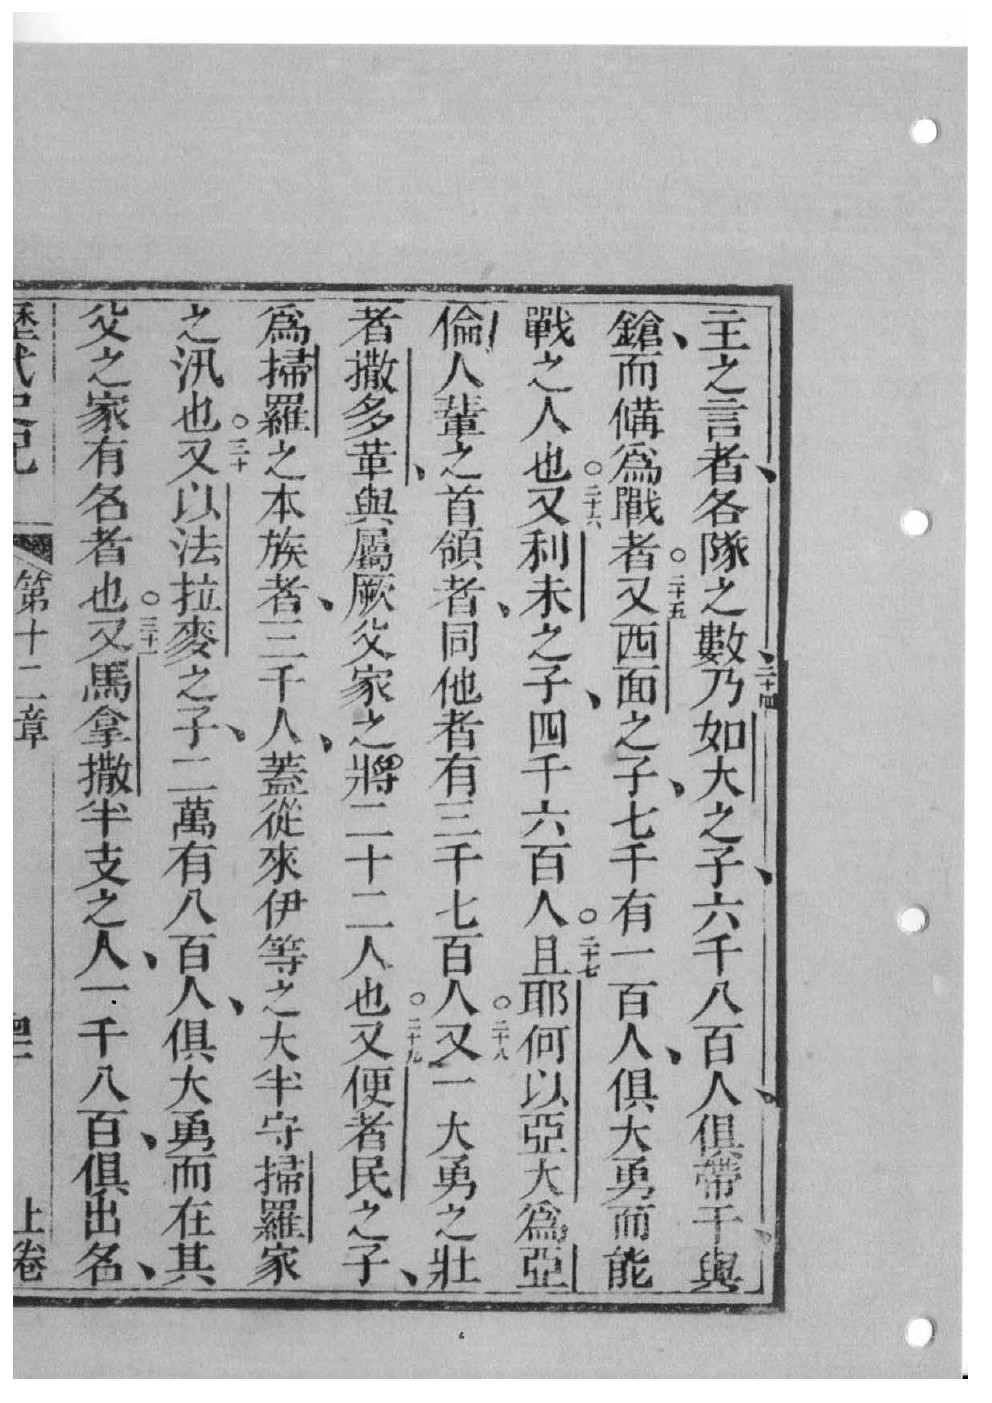 主之言者、各隊之數、二十四乃如大之子、六千八百人、俱帶干、與
鎗、而備爲戰者。二十五又西面之子、七千有一百人、俱大勇而能
戰之人也。二十六又利未之子、四千六百人。二十七且耶何以亞大爲亞
倫人輩之首領者、同他者有三千七百人。二十八又一大勇之壯
者撒多革、與屬厥父家之將二十二人也。二十九又便者民之子、
爲掃羅之本族者、三千人、蓋從來伊等之大半守掃羅家
之汛也。三十又以法拉麥之子、二萬有八百人、俱大勇而在其
父之家有名者也。三十一又馬拿撒半支之人、一千八百、俱出名、
歷代史記 第十二章 上卷